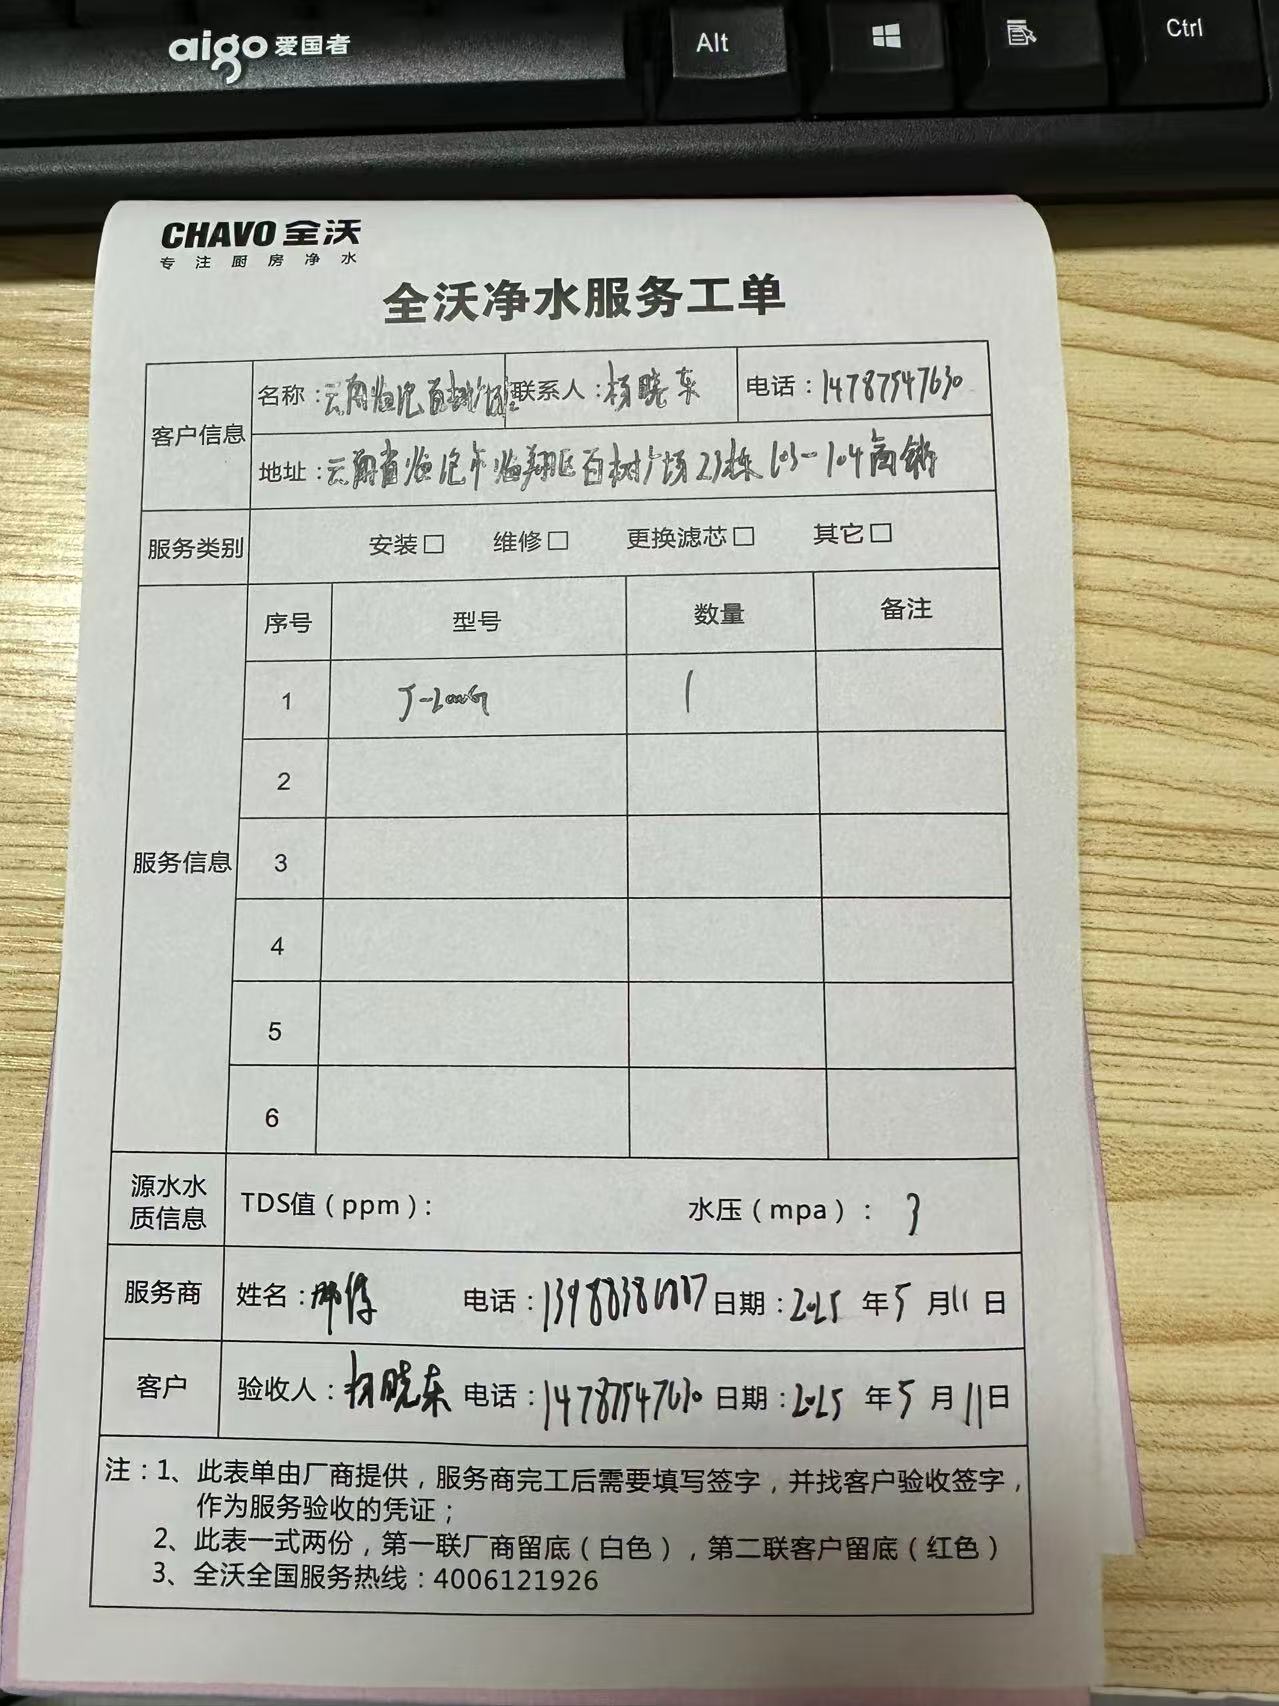 aigo 爱国者
Alt
Ctrl
CHAVO 全沃
专注厨房净水
全沃净水服务工单
客户信息
名称：云南临沧百树广场 联系人：杨晓东 电话：14787547630
地址：云南省临沧市临翔区百树广场23栋103-104商铺
服务类别 安装□ 维修□ 更换滤芯□ 其它□
服务信息
序号 型号 数量 备注
1 J-200G 1
2
3
4
5
6
源水水质信息 TDS值（ppm）： 水压（mpa）：3
服务商 姓名： 电话： 日期：2025 年 5 月 11 日
客户 验收人：杨晓东 电话：14787547630 日期：2025 年 5 月 11 日
注：1、此表单由厂商提供，服务商完工后需要填写签字，并找客户验收签字，
作为服务验收的凭证；
2、此表一式两份，第一联厂商留底（白色），第二联客户留底（红色）
3、全沃全国服务热线：4006121926